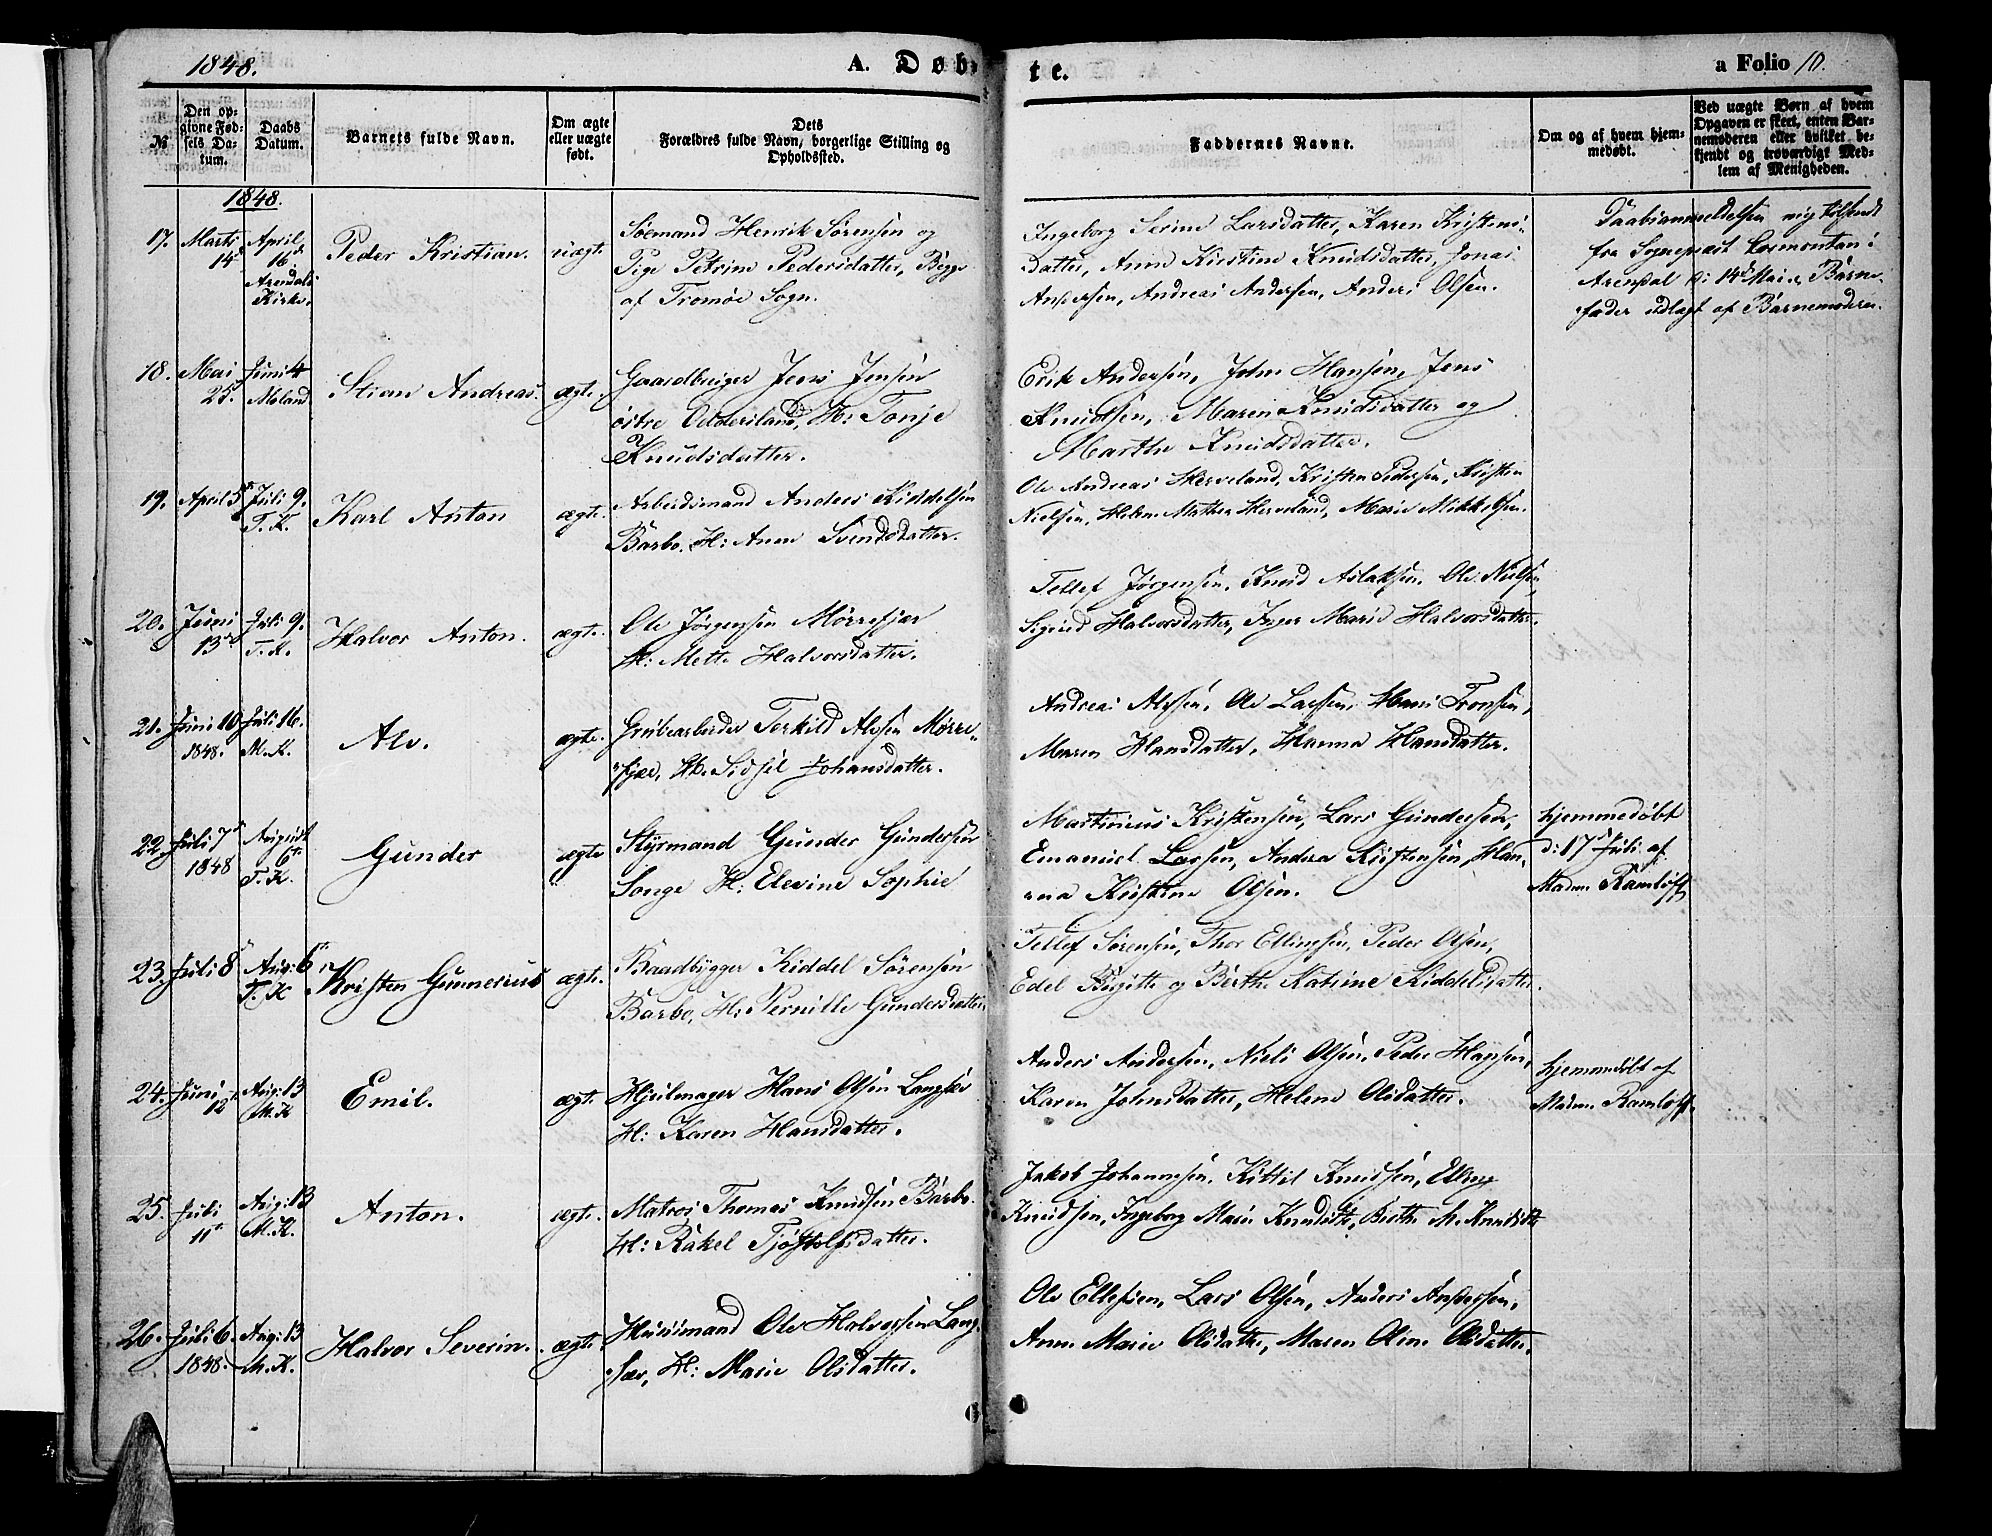 1848.
A. Døb-
te.
a Folio 10.
№
Den op-
givne Fød-
sels Da-
tum.
Daabs
Datum.
Barnets fulde Navn.
Om ægte
eller uægte
født.
Dets
Forældres fulde Navn, borgerlige Stilling og
Opholdssted.
Faddernes Navne.
Om og af hvem hjem-
medøbt.
Ved uægte Børn af hvem
Opgaven er skeet, enten Bar-
nemoderen eller hvilket be-
kjendt og troværdigt Med-
lem af Menigheden.
1848.
17. Marts April Peder Kristian. uægt. Søemand Henrik Sørensen og
14 16
Arendals
Kirke.
Pige Petrine Pedersdatter, Begge
af Tromøe Sogn.
Ingeborg Serine Larsdatter, Karen Kristens-
datter, Anne Kirstine Knudsdatter, Jonas
Andersen, Andreas Andersen, Anders Olsen.
Daabsanmeldelsen mig tilsendt
fra Sognepræst i
Arendal di 14 Mai, Barne-
fader udlagt af Barnemoderen.
18. Mai Juni 4 Stian Andreas. ægte. Gaardbruger Jens Jensen
25. Moland
østre , H: Tonje
Knudsdatter.
Erik Andersen, John Hansen, Jens
Knudsen, Maren Knudsdatter og
Marthe Knudsdatter.
19. April 5 Juli 9. Karl Anton ægte. Arbeidsmand Anders Kiddelsen
T. K.
Barbo, H: Anne Svendsdatter.
Ole Andreas Herveland, Kristen Pedersen, Kristen
Nielsen, Helene Herveland, Marie Mikkelsen.
20. Juni Juli 9. Halvor Anton. ægte. Ole Jørgensen Mørrefjær
13 T. K.
H: Mette Halvorsdatter.
Tellef Jørgensen, Knud Aslaksen, Ole Nielsen,
Sigrid Halvorsdatter, Inger Marie Halvorsdatter.
21. Juni 10 Juli 16. Alv. ægte. Grubearbeider Terkild Alvsen Mørre-
1848. M. K.
fjær, H: Sidsel Johansdatter.
Andreas Alvsen, Ole Larsen, Hans Tronsen,
Maren Hansdatter, Hanna Hansdatter.
22. Juli 7 August Gunder ægte Styrmand Gunder Gundersen
1848 6
T. K.
Songe H: Elevine Sophie
Martinius Kristensen, Lars Gundersen,
Emanuel Larsen, Andrea Kristensen, Han-
na Kristine Olsen.
hjemmedøbt
d: 17 Juli af
Madm. Ramløff
23. Juli 8 Aug: 6 Kristen Gunnerius ægte. Baadbygger Kiddel Sørensen
T. K
Barbo, H: Pernille Gundersdatter.
Tellef Sørensen, Thor Ellingsen, Peder Olsen,
Edel Birgitte og Berthe Katrine Kiddelsdatter.
24. Juni Aug: 13 Emil. ægt. Hjulmager Hans Olsen Langsæ
12 M. K
H: Karen Hansdatter.
Anders Andersen, Niels Olsen, Peder Hansen,
Karen Johnsdatter, Helene Olsdatter.
hjemmedøbt af
Madm. Ramløff.
25. Juli Aug: 13 Anton. ægte. Matros Thomas Knudsen Barbo.
11 M. K.
H: Rakel Tjøstolfsdatter.
Jakob Johannesen, Kittil Knudsen, Ellef
Knudsen, Ingeborg Marie Knudsdtr, Berthe M. Knudsdtr
26. Juli 6. Aug: 13 Halvor Severin. ægte. Huusmand Ole Halvorsen Lang-
1848. M. K.
sæ, H: Marie Olsdatter.
Ole Ellefsen, Lars Olsen, Anders Andersen,
Anne Marie Olsdatter, Maren Oline Olsdatter.